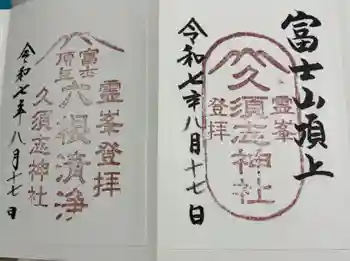 富士山頂上
霊峯登拝
久須志神社
令和七年八月十七日
霊峯登拝
六根清浄
富士頂上
久須志神社
令和七年八月十七日